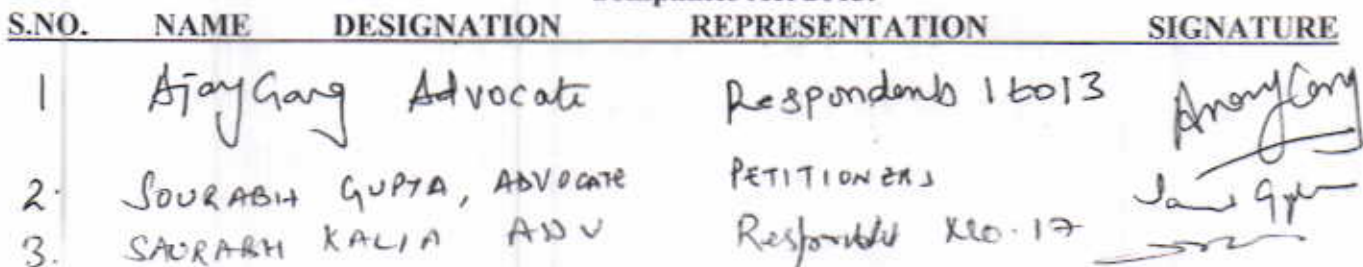 S.NO. NAME DESIGNATION REPRESENTATION SIGNATURE
1 Ajay Garg Advocate Respondents 1 to 13
2. SOURABH GUPTA, ADVOCATE PETITIONERS
3. SAURABH KALIA ADV Respondent No. 17